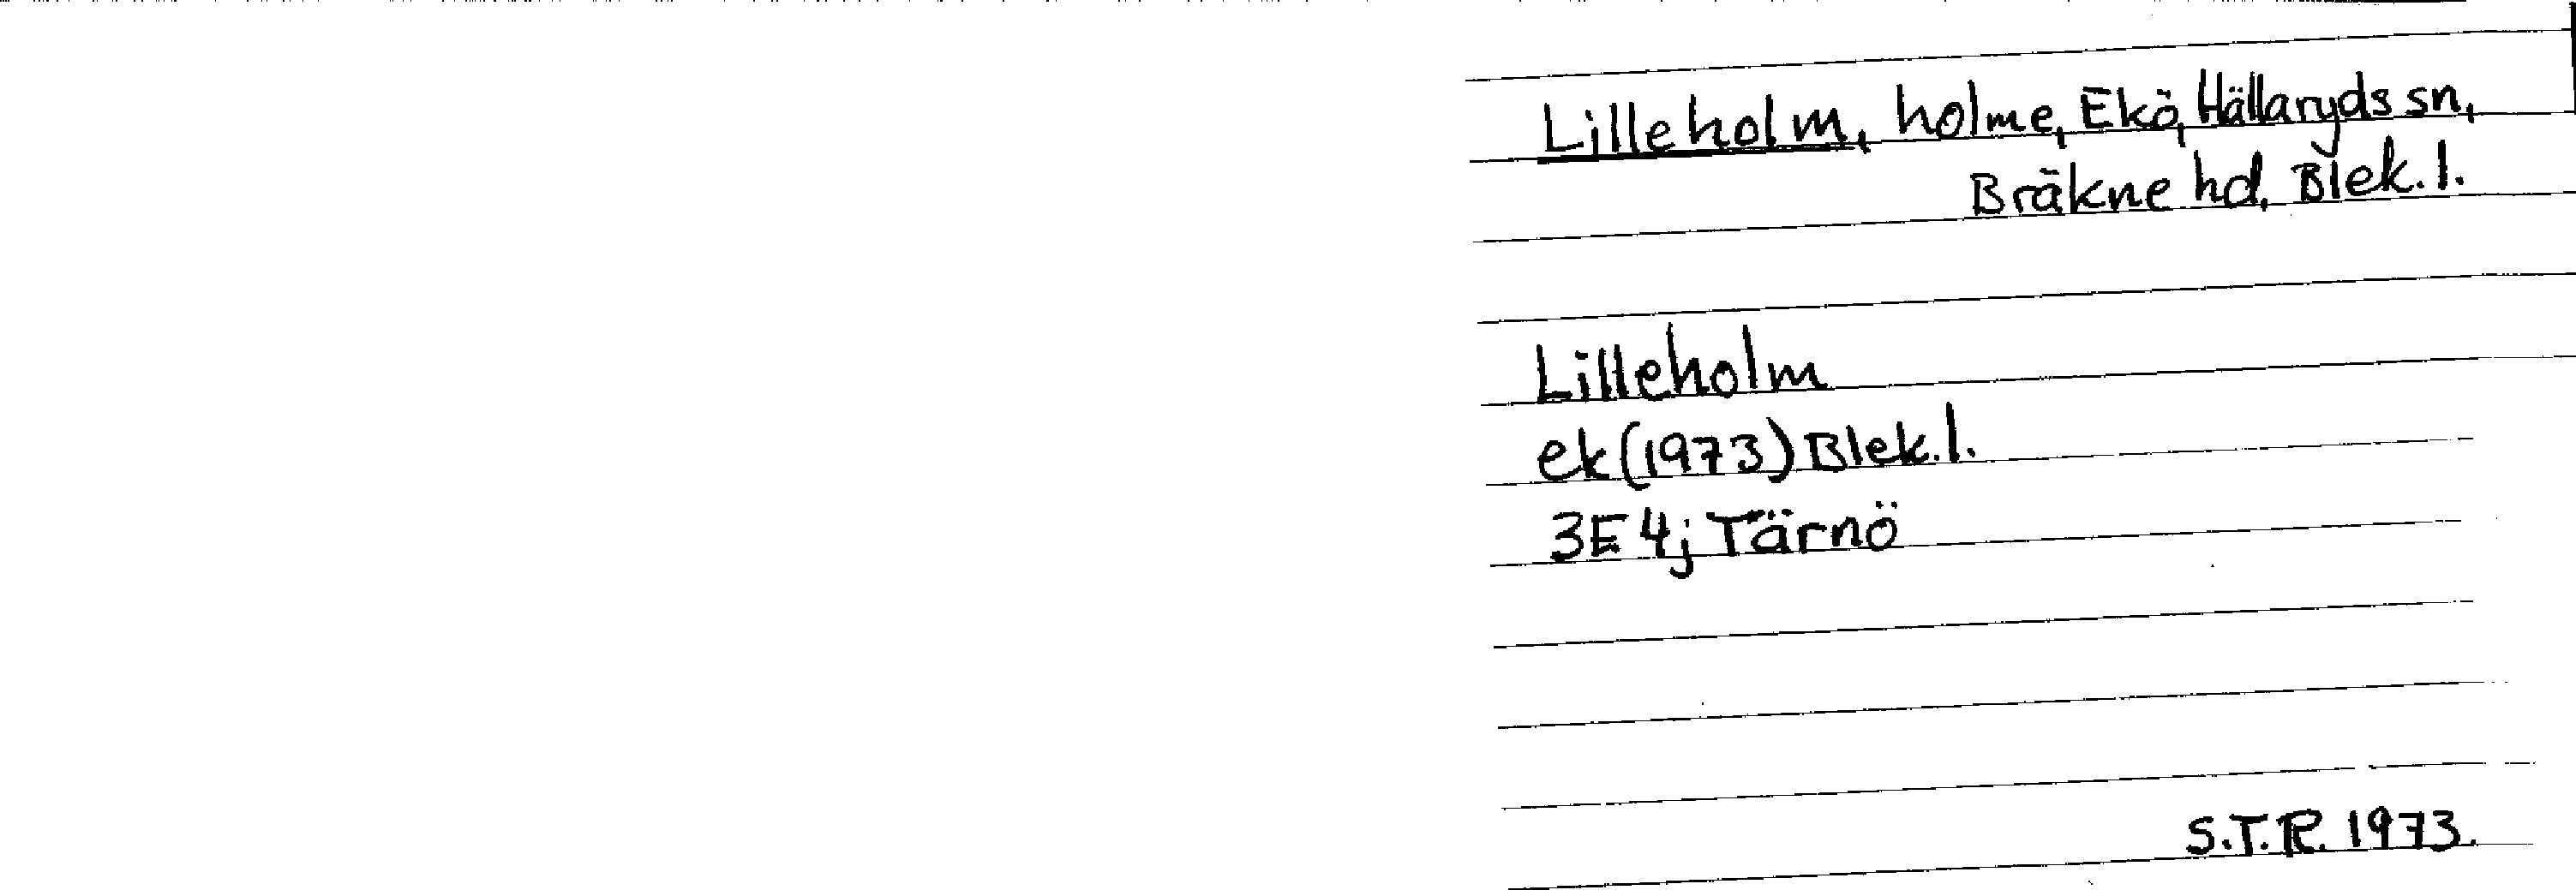 Lilleholm, holme, Ekö, Hällaryds sn,
Bräkne hd, Blek. l.
Lilleholm
ek (1973) Blek. l.
3E 4j Tärnö
S.T.R. 1973.